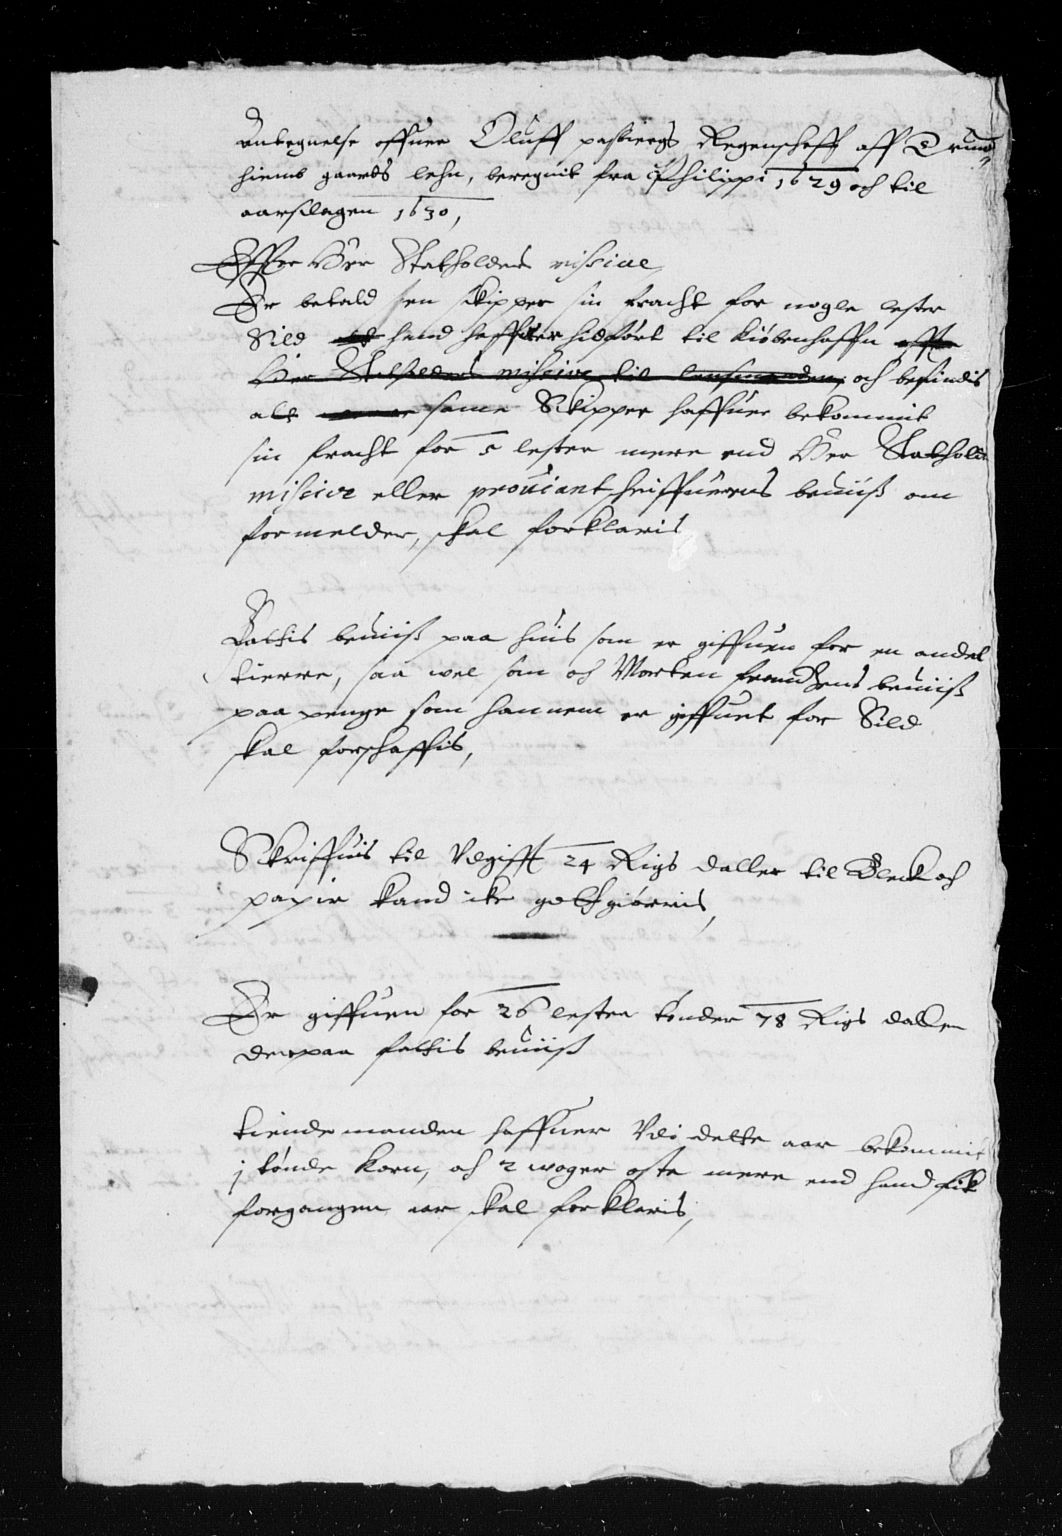 Antegnelse offuer Oluff pasbiergs Regenschaff aff Trund-
hiems gaards lehn, beregnit fra Philippi 1629 och til
aarsdagen 1630,
Effter Her Statholders missiue,
Er betald en skipper sin fracht for nogle lester
Sild hand haffuer hidført til kiøbenhaffn effter
Her Statholders missiue til lensmanden, och befindis
alt same Skipper haffuer bekommit
sin fracht for 5 lester mere end Her Statholders
missiue eller prouiant skriffuerens beuiiß om
formelder, skal forklaris
Fattis beuiiß paa huis som er giffuen for en andel
tierre, saa wel som och Morten frandzens beuiiß
paa penge som hannem er giffuet for Sild
skal forschaffis,
Skriffuis til Vdgifft 24 Rigs daller til Bleck och
papir kand ike godtgiørris,
Er giffuen for 26 lester tønder 78 Rigs daller
der paa fattis beuiiß
tiende manden haffuer Vdi dette aar bekommit
j tønde korn, och 2 woger oste mere end hand fik
forgangen aar skal forklaris,